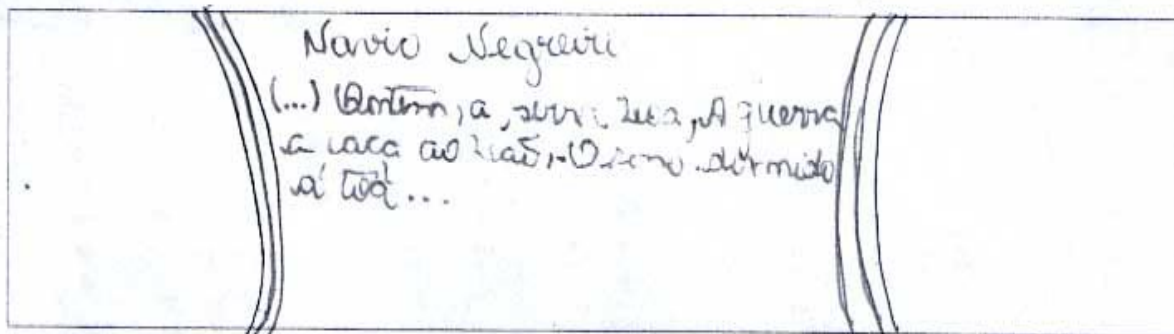 Navio Negreiro
(...) Ontem, a Serra Leoa, A guerra
a caça ao leão, O sono dormido
á toá...